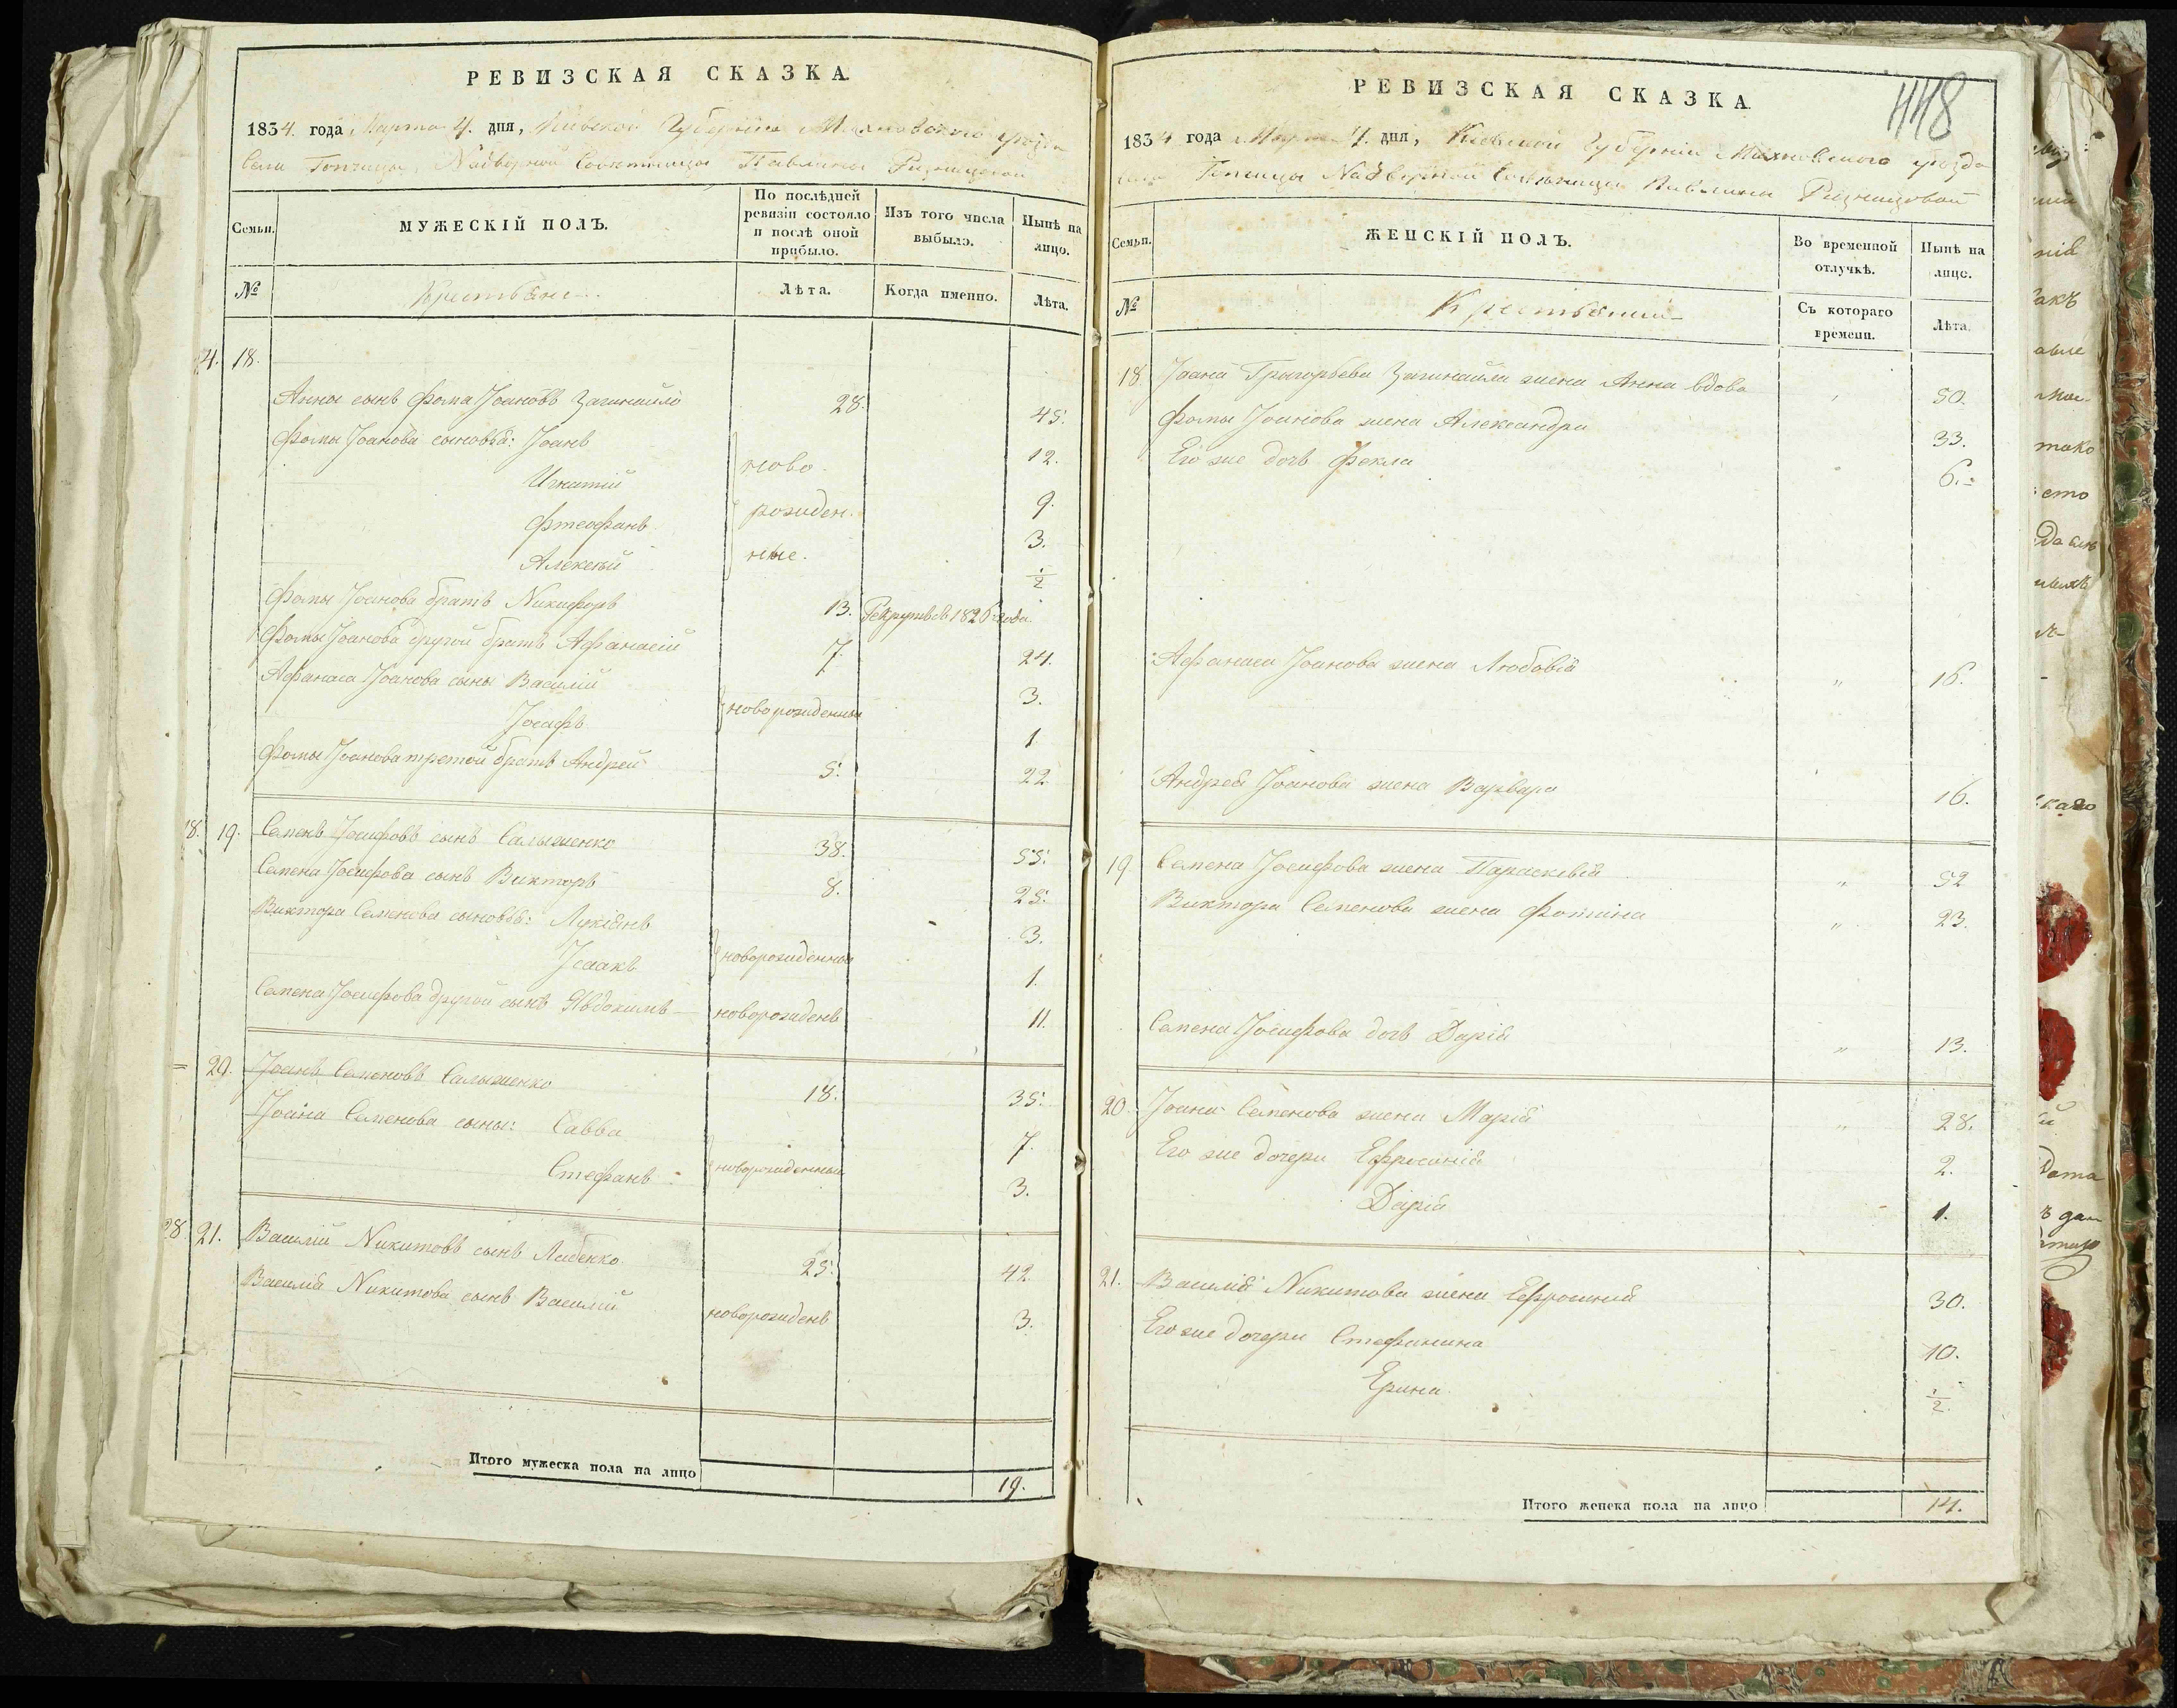 РЕВИЗСКАЯ СКАЗКА.
1834. года, Марта 4. дня, Киевской Губерніи Махновскаго уѣзда
Села Топчицы, Надворной Совѣтницы Павлины
Семьи.
МУЖЕСКІЙ ПОЛЪ.
По послѣдней ревизіи состояло и послѣ оной прибыло.
Изъ того числа выбыло.
Нынѣ на лицо.
№
Крестьяне
Лѣта.
Когда именно.
Лѣта.
4. 18.
Анны сынъ Фома Іоановъ 28. 45.
Фомы Іоанова сыновья: Іоанъ ново- 12.
Игнатій рожден- 9.
Фтеофанъ ные. 3.
Алексѣй 1/2
Фомы Іоанова братъ Никифоръ 13. Рекрутъ съ 1826 года
Фомы Іоанова другой братъ Афанасій 7. 24.
Афанаса Іоанова сыны Василій новорожденные 3.
Іосафъ 1.
Фомы Іоанова третой братъ Андрей 5. 22
18. 19. Семенъ Іосифовъ сынъ Салыженко 38. 55.
Семена Іосифова сынъ Викторъ 8. 25.
Виктора Семенова сыновья: Лукіянъ новорожденные 3.
Ісаакъ 1.
Семена Іосифова другой сынъ Явдокимъ новорожденъ 11.
20. Іоанъ Семеновъ Салыженко 18. 35.
Іоана Семенова сыны: Савва новорожденные 7.
Стефанъ 3.
28. 21. Василій Никитовъ сынъ 25. 42.
Василія Никитова сынъ Василій новорожденъ 3.
Итого мужеска пола на лицо 19.
448
РЕВИЗСКАЯ СКАЗКА.
1834 года Марта 4. дня, Кіевской Губерніи Махновскаго уѣзда
села Топчицы Надворной Совѣтницы Павлины
Семьи.
ЖЕНСКІЙ ПОЛЪ.
Во временной отлучкѣ.
Нынѣ на лицо.
№
Крестьянки
Съ котораго времени.
Лѣта.
18. Іоана Григорьева жена Анна вдова 50.
Фомы Іоанова жена Александра 33.
Его же дочь Фекла 6.
Афанаса Іоанова жена Любовія 16.
Андрея Іоанова жена Варвара 16.
19. Семена Іосифова жена Параскевія 52
Виктора Семенова жена Фотина 23.
Семена Іосифова дочь Дарія 13.
20. Іоана Семенова жена Марія 28.
Его же дочери Ефросинія 2.
Дарія 1.
21. Василія Никитова жена Ефросинія 30.
Его же дочери Стефанина 10.
Ерина 1/2.
Итого женска пола на лицо 14.